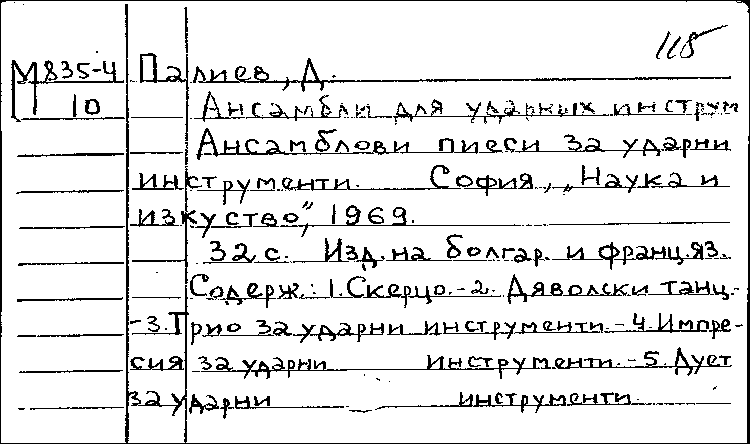 118
М835-4 Палиев, Д.
10 Ансамбли для ударных инструм
Ансамблови пиеси за ударни
инструменти. София, „Наука и
изкуство", 1969.
32 с. Изд. на болгар. и франц. яз.
Содерж.: 1. Скерцо. - 2. Дяволски танц.
- 3. Трио за ударни инструменти. - 4. Импре-
сия за ударни инструменти. - 5. Дует
за ударни инструменти